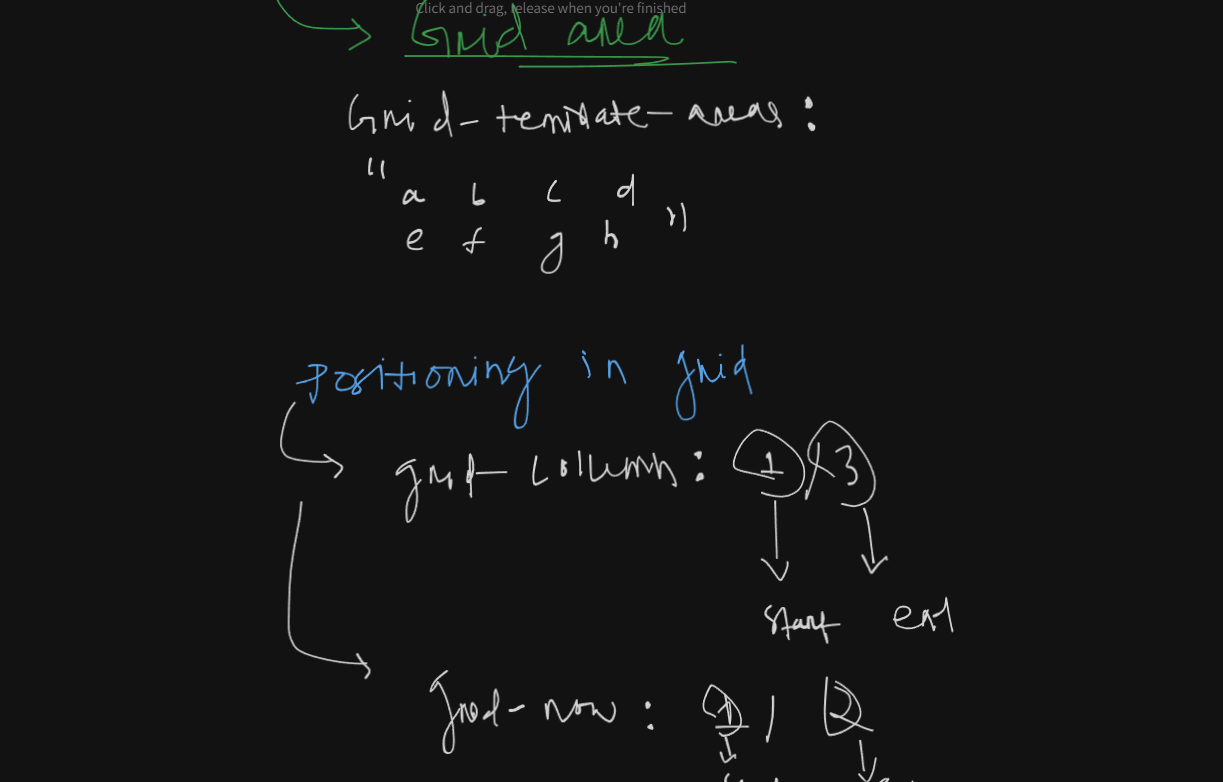 Click and drag, release when you're finished
Grid area
Grid-template-areas:
"
a b c d
e f g h "
Positioning in grid
grid-column: 1 / 3
start end
grid-row: 1 / 2